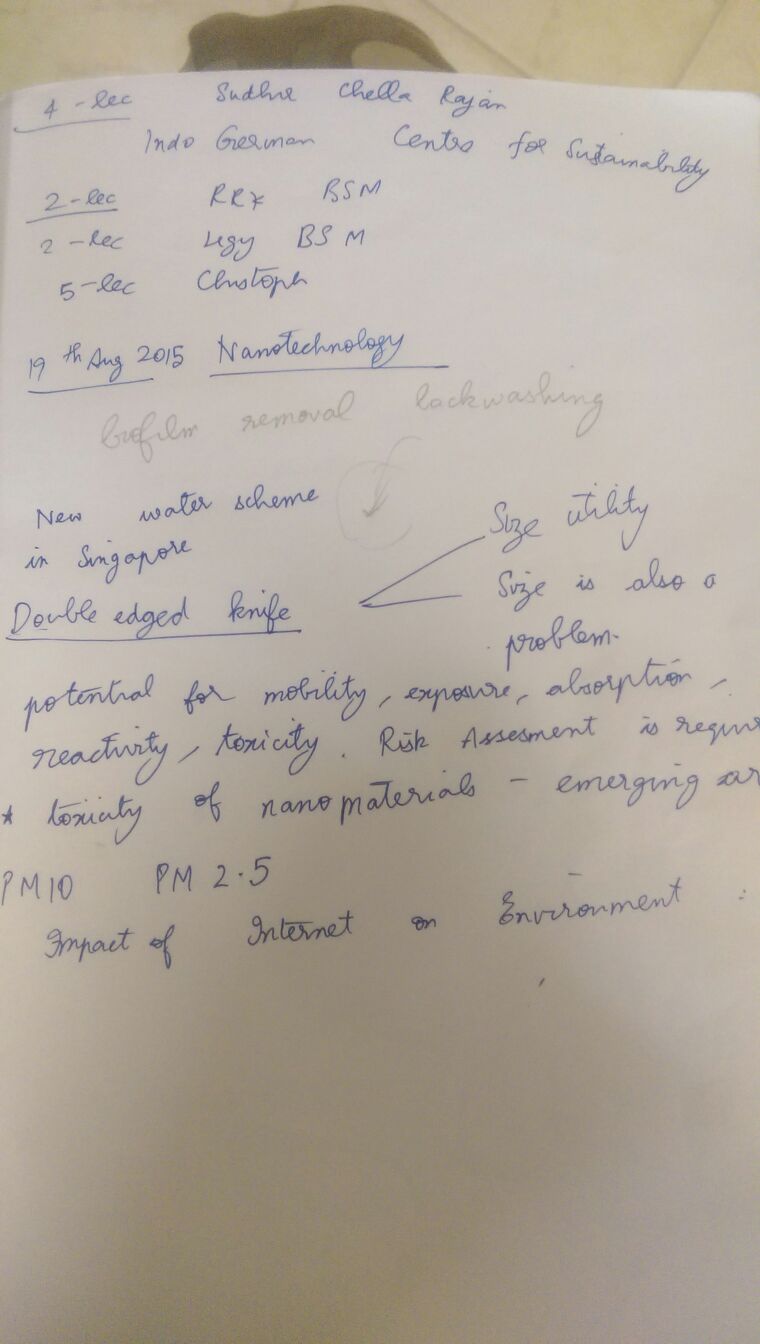 4 - lec Sudhir Chella Rajan
Indo German Centre for Sustainability
2 - lec BSM
2 - lec Ligy BSM
5 - lec Christoph
19th Aug 2015 Nanotechnology
biofilm removal backwashing
New water scheme
in Singapore
Size utility
Double edged knife
Size is also a
problem.
potential for mobility, exposure, absorption,
reactivity, toxicity. Risk Assesment is requir
* toxicity of nanomaterials - emerging ar
PM10 PM 2.5
Impact of Internet on Environment :